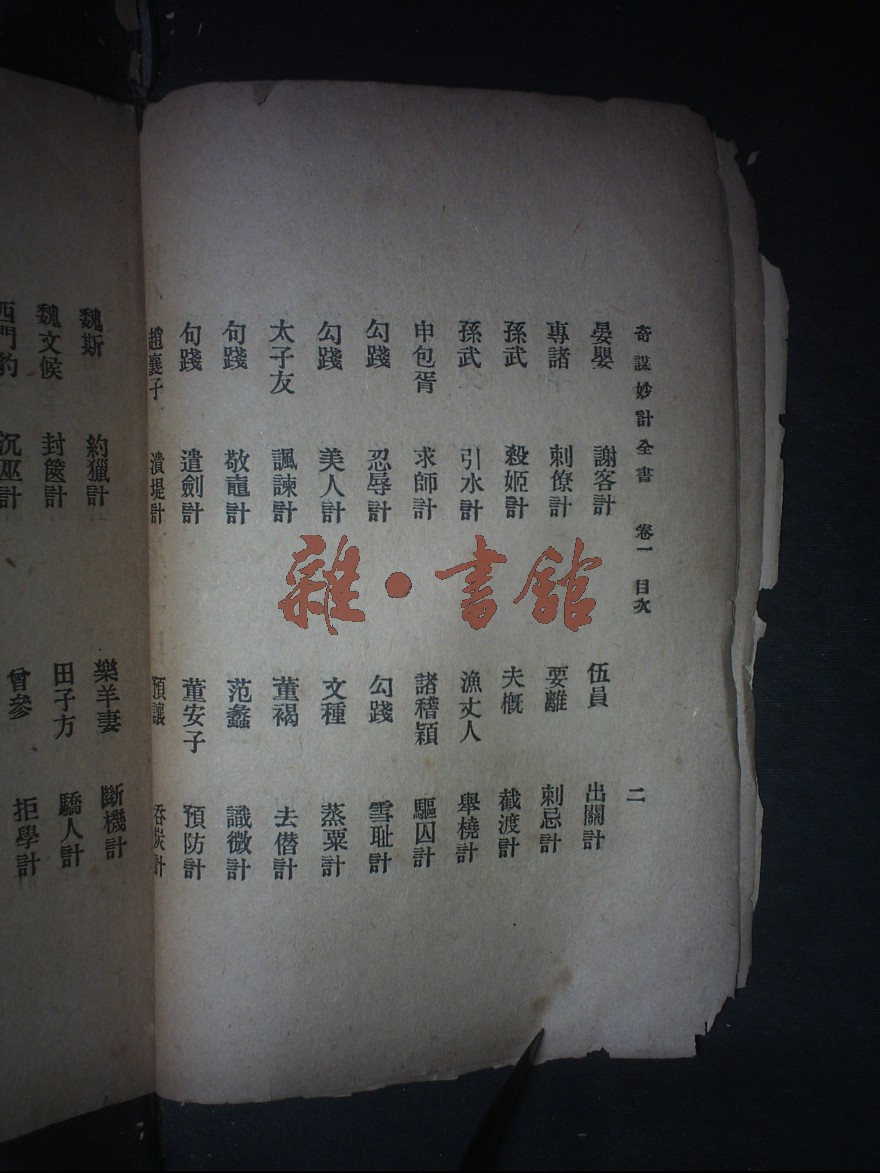 奇謀妙計全書 卷一 目次 二
晏嬰 謝客計 伍員 出關計
專諸 刺僚計 要離 刺忌計
孫武 殺姬計 夫概 截渡計
孫武 引水計 漁丈人 舉橈計
申包胥 求師計 諸稽穎 驅囚計
勾踐 忍辱計 勾踐 雪耻計
勾踐 美人計 文種 蒸粟計
太子友 諷諫計 董褐 去僭計
句踐 敬鼃計 范蠡 識微計
句踐 遣劍計 董安子 預防計
趙襄子 潰堤計 預讓 吞炭計
魏斯 約獵計 樂羊妻 斷機計
魏文候 封篋計 田子方 驕人計
西門豹 沉巫計 曾參 拒學計
雜·書館